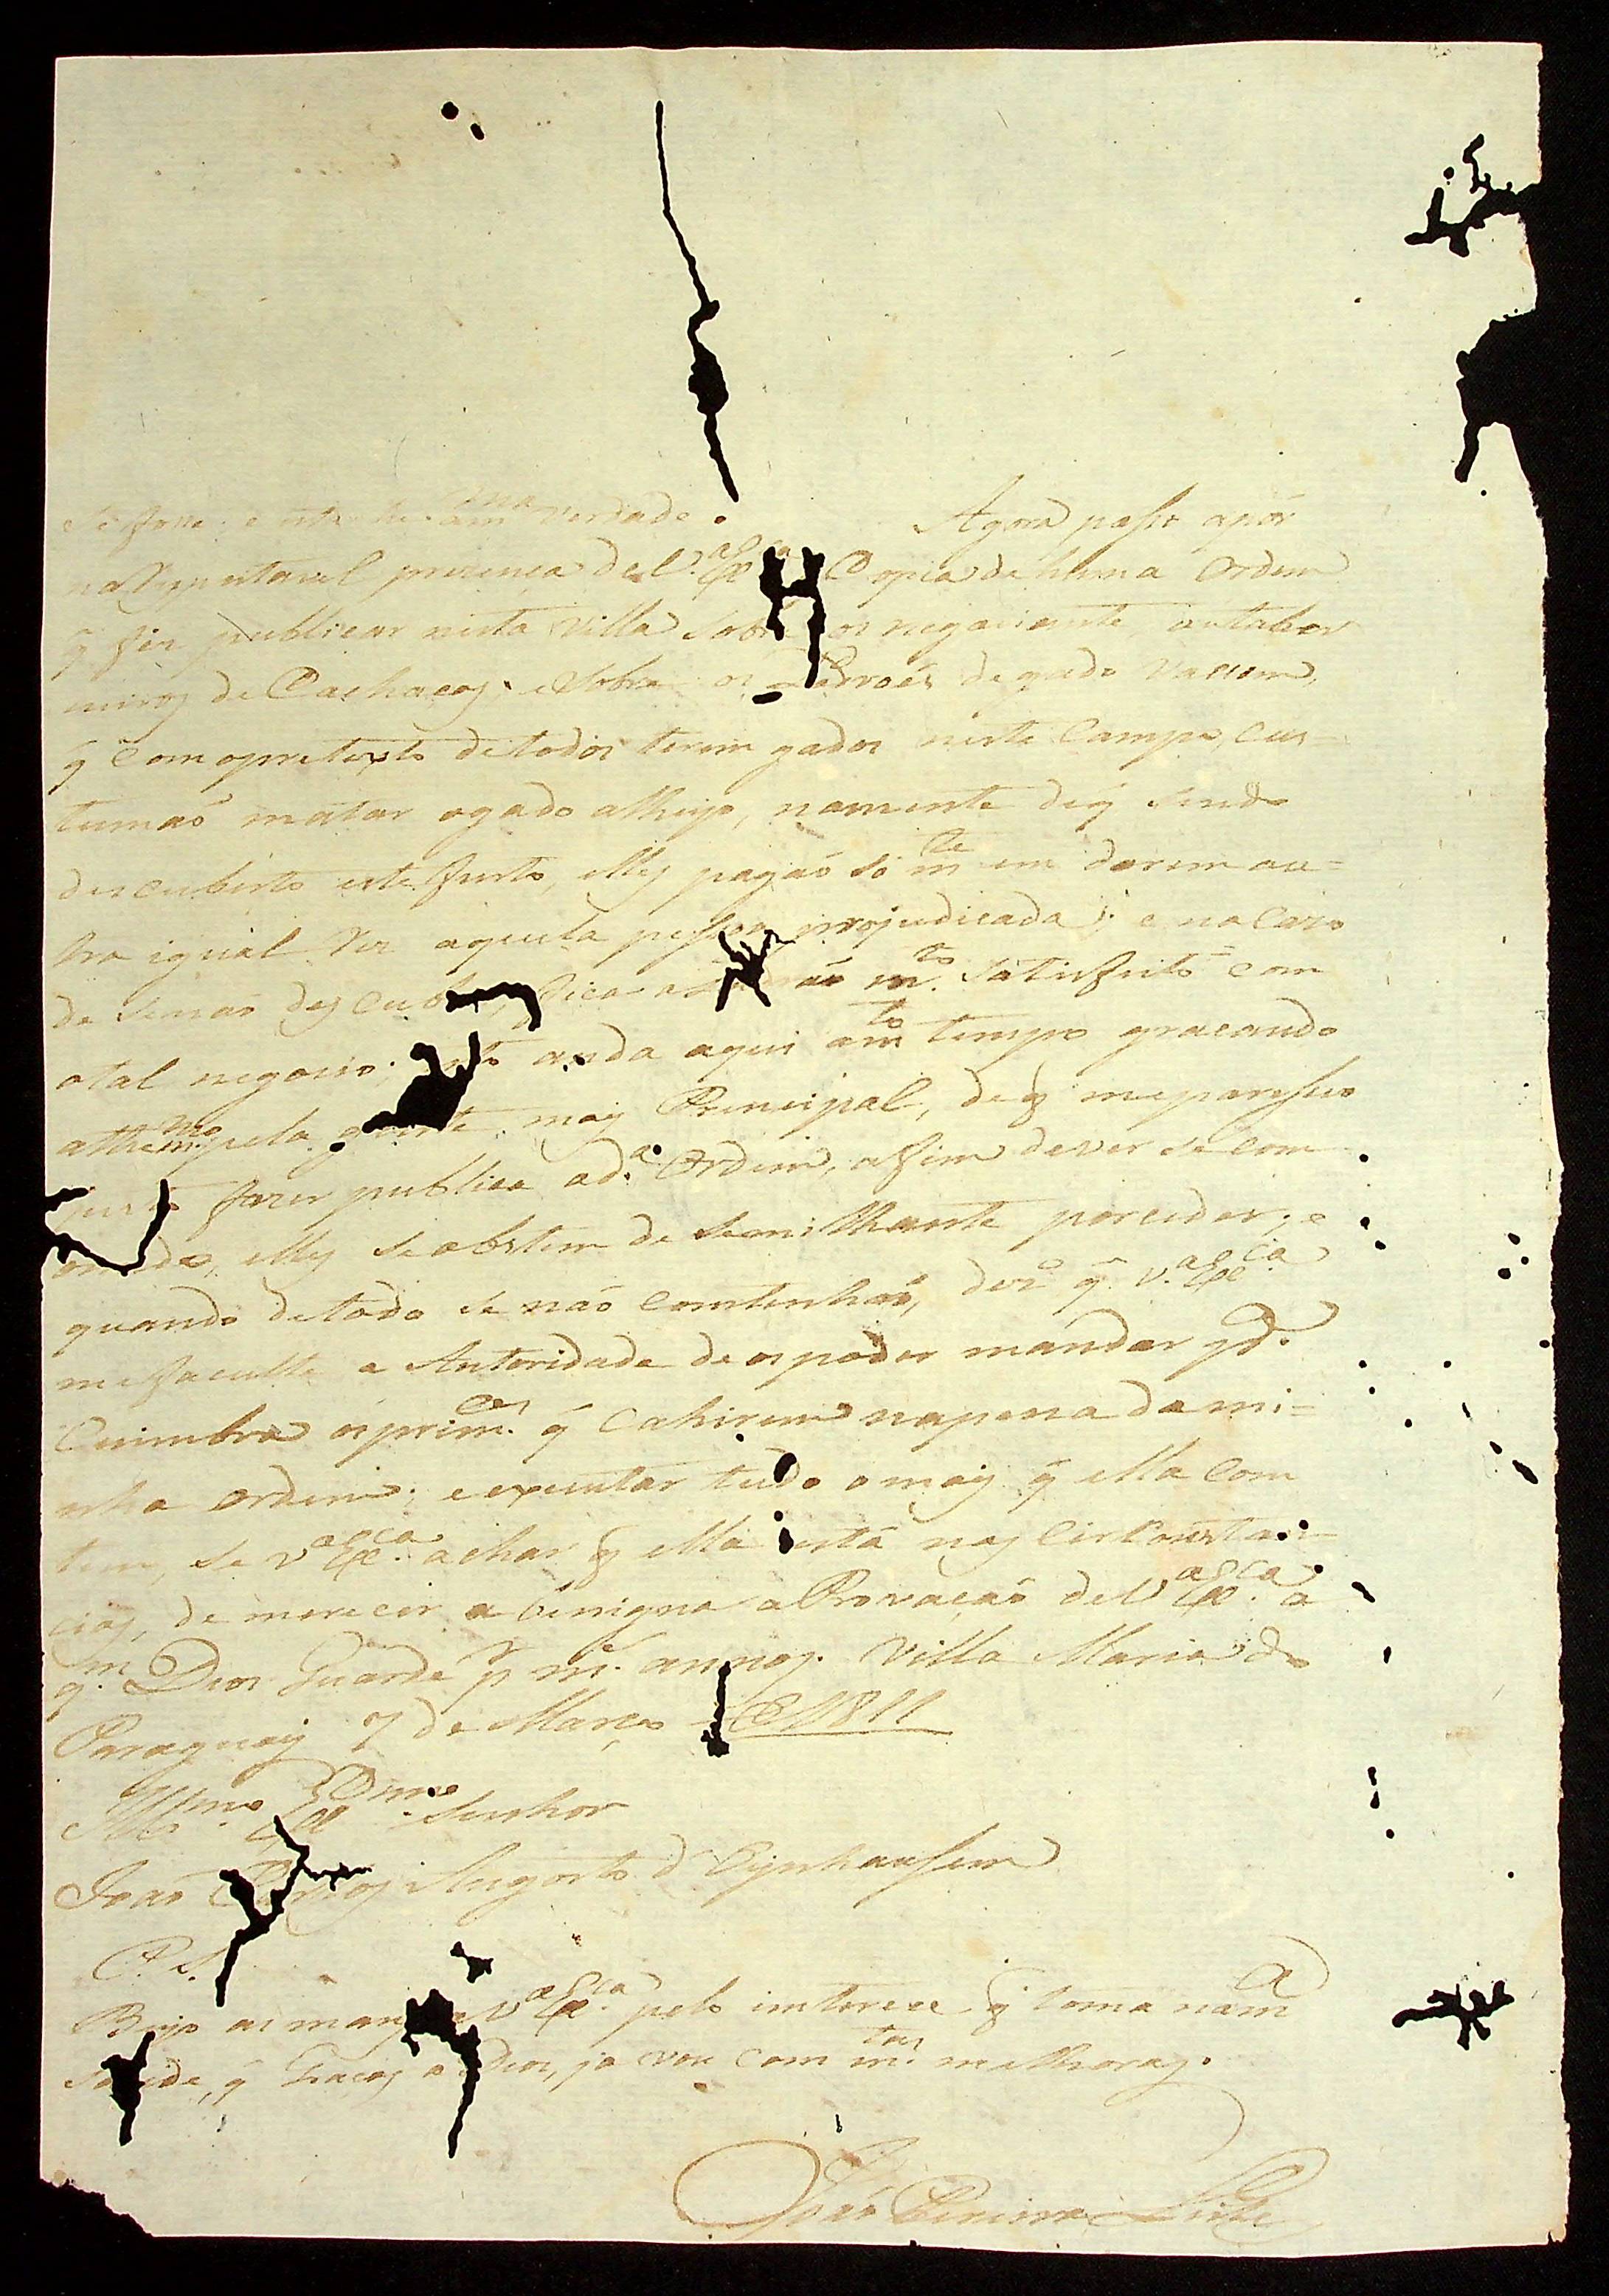 verdade. Agora paſso apôr
prezença de V.ª Ex.ca Copia de huma Ordem
q̃ fiz publicar nesta Villa Sobre os negociante, e
de Cachacas; e Sobre os Ladroẽs de gado Vacum,
q̃ Com opretexto detodos terem gados neste Campo, Cus-
tumaõ matar ogado alheyo, namente deq̃ sendo
descuberto este furto, elles pagaõ só m.te em darem ou=
tra igual Rez aquela peſsoa prejudicada; e no Cazo
de senaõ des cubrir, fica o m.to Satisfeito = com
otal negocio; isto anda aqui a m.to tempo gracando
athe m.mo pela gente mais Principal, deq̃ mepareſseo
justo fazer publica ad.ª Ordem, afim dever se com
omedo, elles se abstem de Semilhante porceder; e
quando detodo se não contenhaõ, dez.º q̃ V.ª Ex.ca
mefaculte a Autoridade de os poder mandar p.ª
Cuimbra os prim.ros q̃ Cahirem napena dami=
nha Ordem; e executar tudo o mais q̃ ella Com
tem, se V.ª Ex.ca achar q̃ ella está nas Circonstan-
cias, de merecer a benigna aProvaçaõ de V.ª Ex.ca a
q.m Deos Guarde p.r m.s annos. Villa Maria do
Paraguay 7 de Março de 1811
Ill.mo e Ex.mo Senhor
Joaõ Carlos Augosto d'Oeynhauſem
P. S.
Beijo as maos a V.ª Ex.ca pelo interece q̃ toma na m.ª
saude, q̃ Gracas a Deos, ja vou com m.tas melhoras.
Joaõ Pereira Leite